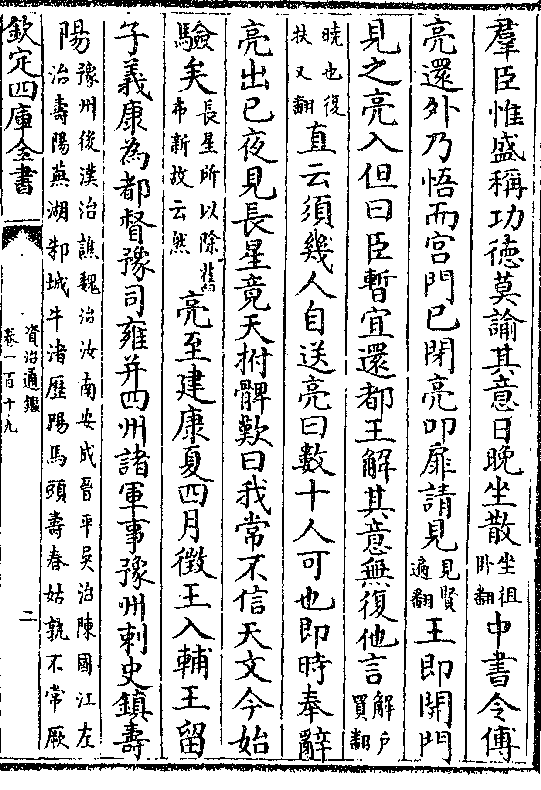 羣臣惟盛稱功德莫諭其意日晚坐散坐徂卧翻中書令傅
亮還外乃悟而宮門已閉亮叩扉請見見賢遍翻王即開門
見之亮入但曰臣暫宜還都王解其意無復他言解户買翻
曉也復扶又翻直云須幾人自送亮曰數十人可也即時奉辭
亮出已夜見長星竟天拊髀歎曰我常不信天文今始
驗矣長星所以除舊布新故云然亮至建康夏四月徵王入輔王留
子義康為都督豫司雍并四州諸軍事豫州刺史鎮壽
陽豫州後漢治譙魏治汝南安成晉平吳治陳國江左治壽陽蕪湖邾城牛渚歷陽馬頭壽春姑孰不常厥
欽定四庫全書
資治通鑑
卷一百十九
二